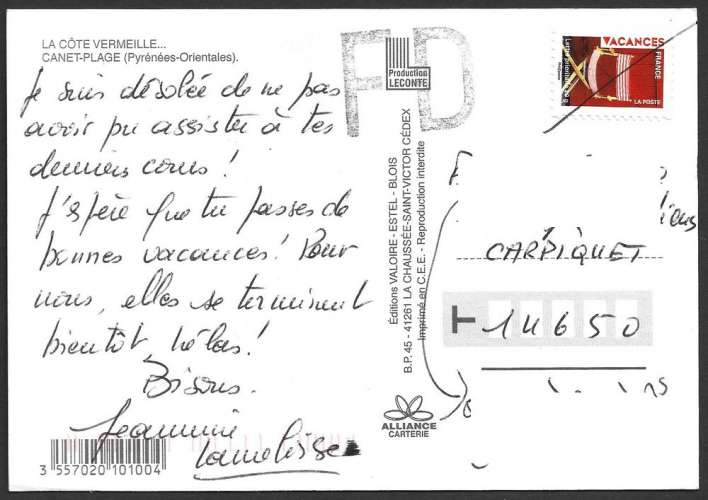 LA CÔTE VERMEILLE...
CANET-PLAGE (Pyrénées-Orientales).
Je suis désolée de ne pas
avoir pu assister à tes
derniers cours !
J'espère que tu passes de
bonnes vacances ! Pour
nous, elles se terminent
bientôt, hélas !
Bisous.
Jeannine
3 557020 101004
PD
Production
LECONTE
Éditions VALOIRE-ESTEL - BLOIS
B.P. 45 - 41261 LA CHAUSSÉE-SAINT-VICTOR CÉDEX
Imprimé en C.E.E. - Reproduction interdite
ALLIANCE
CARTERIE
VACANCES
FRANCE
Lettre prioritaire 20 g
LA POSTE
CARPIQUET
14650